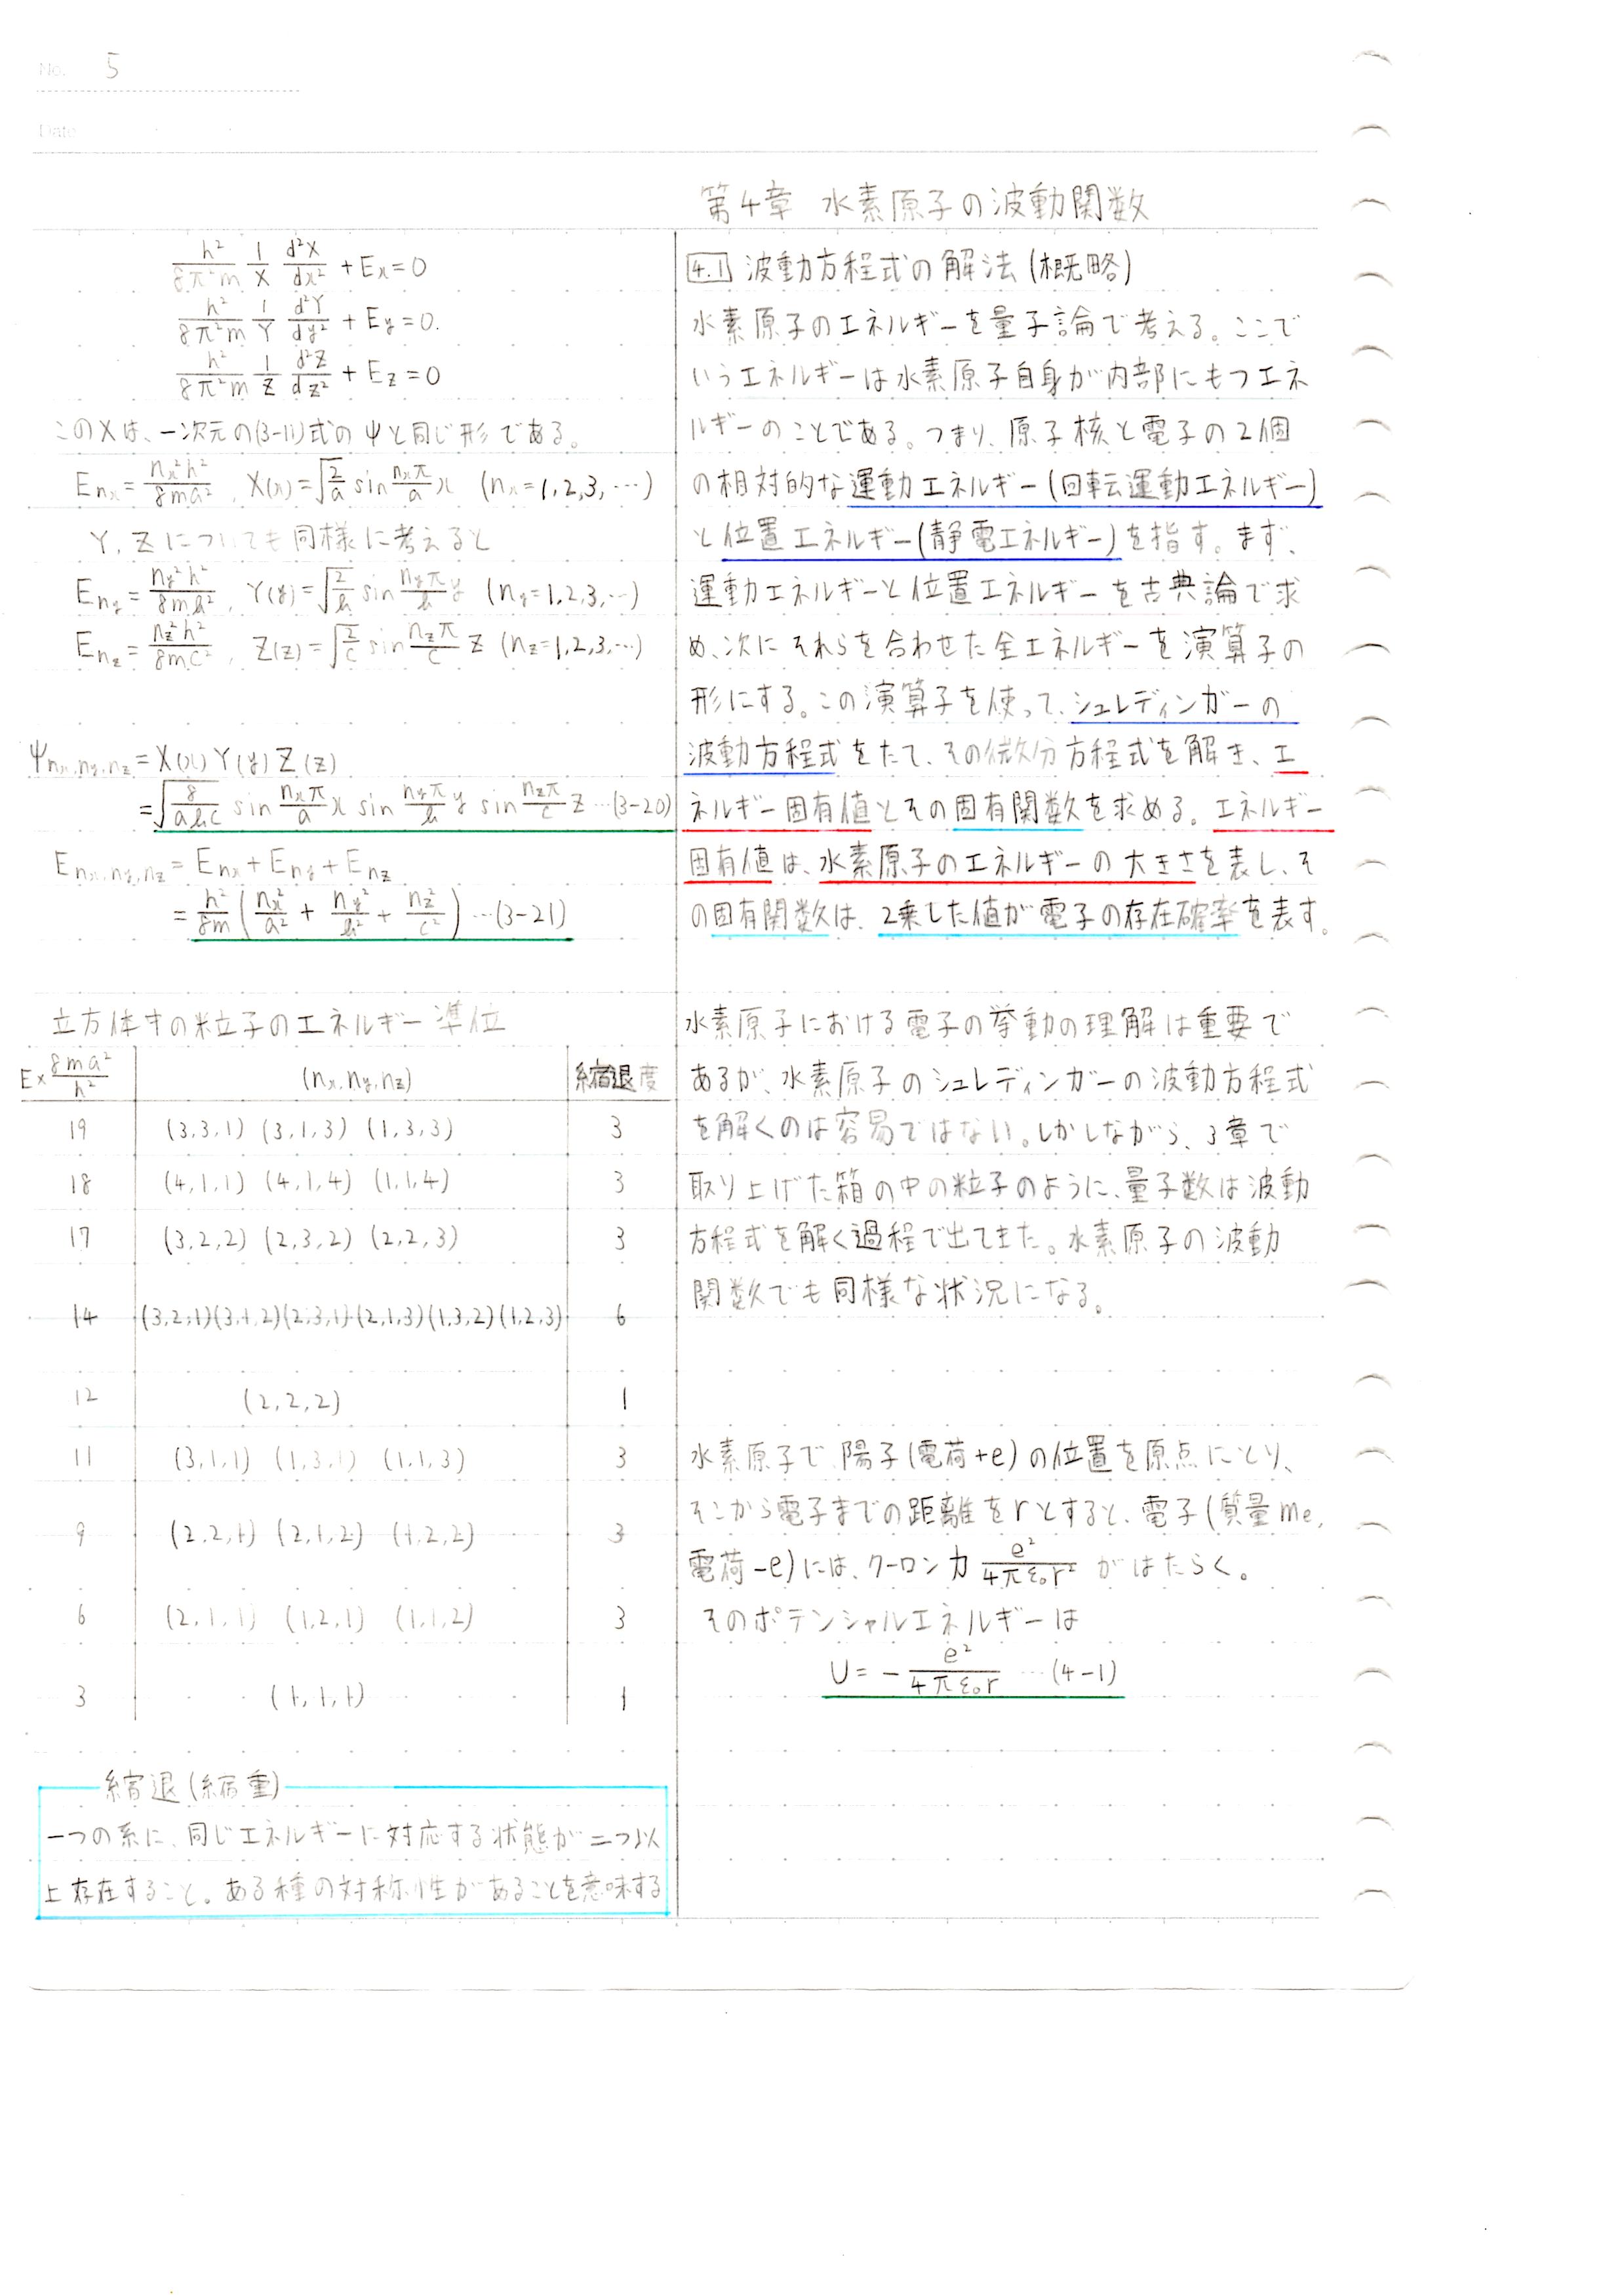 No. 5
Date
h²/8π²m 1/X d²X/dx² + Ex = 0
h²/8π²m 1/Y d²Y/dy² + Ey = 0.
h²/8π²m 1/Z d²Z/dz² + Ez = 0
このXは、一次元の(3-11)式のψと同じ形である。
Enx = nx²h²/8ma², X(x) = √(2/a) sin nxπ/a x (nx=1,2,3,…)
Y, Zについても同様に考えると
Eny = ny²h²/8mb², Y(y) = √(2/b) sin nyπ/b y (ny=1,2,3,…)
Enz = nz²h²/8mc², Z(z) = √(2/c) sin nzπ/c z (nz=1,2,3,…)
ψnx,ny,nz = X(x)Y(y)Z(z)
= √(8/abc) sin nxπ/a x sin nyπ/b y sin nzπ/c z …(3-20)
Enx,ny,nz = Enx + Eny + Enz
= h²/8m (nx²/a² + ny²/b² + nz²/c²) …(3-21)
立方体中の粒子のエネルギー準位
E×8ma²/h² (nx,ny,nz) 縮退度
19 (3,3,1) (3,1,3) (1,3,3) 3
18 (4,1,1) (4,1,4) (1,1,4) 3
17 (3,2,2) (2,3,2) (2,2,3) 3
14 (3,2,1)(3,1,2)(2,3,1)(2,1,3)(1,3,2)(1,2,3) 6
12 (2,2,2) 1
11 (3,1,1) (1,3,1) (1,1,3) 3
9 (2,2,1) (2,1,2) (1,2,2) 3
6 (2,1,1) (1,2,1) (1,1,2) 3
3 (1,1,1) 1
縮退(縮重)
一つの系に、同じエネルギーに対応する状態が二つ以
上存在すること。ある種の対称性があることを意味する
第4章 水素原子の波動関数
4.1 波動方程式の解法(概略)
水素原子のエネルギーを量子論で考える。ここで
いうエネルギーは水素原子自身が内部にもつエネ
ルギーのことである。つまり、原子核と電子の2個
の相対的な運動エネルギー(回転運動エネルギー)
と位置エネルギー(静電エネルギー)を指す。まず、
運動エネルギーと位置エネルギーを古典論で求
め、次にそれらを合わせた全エネルギーを演算子の
形にする。この演算子を使って、シュレディンガーの
波動方程式をたて、その微分方程式を解き、エ
ネルギー固有値とその固有関数を求める。エネルギー
固有値は、水素原子のエネルギーの大きさを表し、そ
の固有関数は、2乗した値が電子の存在確率を表す。
水素原子における電子の挙動の理解は重要で
あるが、水素原子のシュレディンガーの波動方程式
を解くのは容易ではない。しかしながら、3章で
取り上げた箱の中の粒子のように、量子数は波動
方程式を解く過程で出てきた。水素原子の波動
関数でも同様な状況になる。
水素原子で、陽子(電荷+e)の位置を原点にとり、
そこから電子までの距離をrとすると、電子(質量me,
電荷-e)には、クーロン力 e²/4πε₀r² がはたらく。
そのポテンシャルエネルギーは
U = - e²/4πε₀r …(4-1)